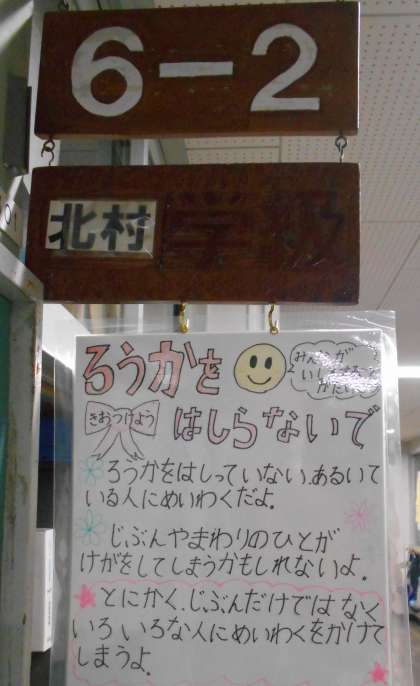 6-2
北村 学級
ろうかを
みんなが
きおつけよう
はしらないで
ろうかをはしっていない、あるいて
いる人にめいわくだよ。
じぶんやまわりのひとが
けがをしてしまうかもしれないよ。
とにかく、じぶんだけではなく
いろいろな人にめいわくをかけて
しまうよ。